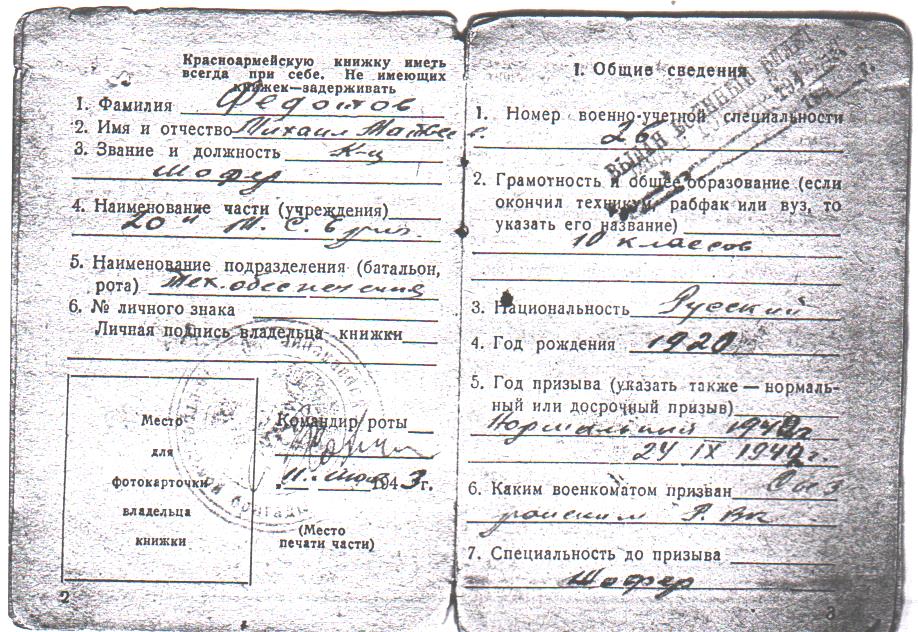 Красноармейскую книжку иметь
всегда при себе. Не имеющих
книжек—задерживать
1. Фамилия Федотов
2. Имя и отчество Михаил Матвеев.
3. Звание и должность К-ц
шофер
4. Наименование части (учреждения)
20й
5. Наименование подразделения (батальон,
рота) Тех. обеспечения
6. № личного знака
Личная подпись владельца книжки
Место
для
фотокарточки
владельца
книжки
Командир роты
11. 1943г.
(Место
печати части)
2
ВЫДАН ВОЕННЫЙ БИЛЕТ
I. Общие сведения
1. Номер военно-учетной специальности
26
2. Грамотность и общее образование (если
окончил техникум, рабфак или вуз, то
указать его название)
10 классов
3. Национальность Русский
4. Год рождения 1920
5. Год призыва (указать также — нормаль-
ный или досрочный призыв)
Нормальный 1940г
24 IX 1940г.
6. Каким военкоматом призван
Р. Вк
7. Специальность до призыва
Шофер
3